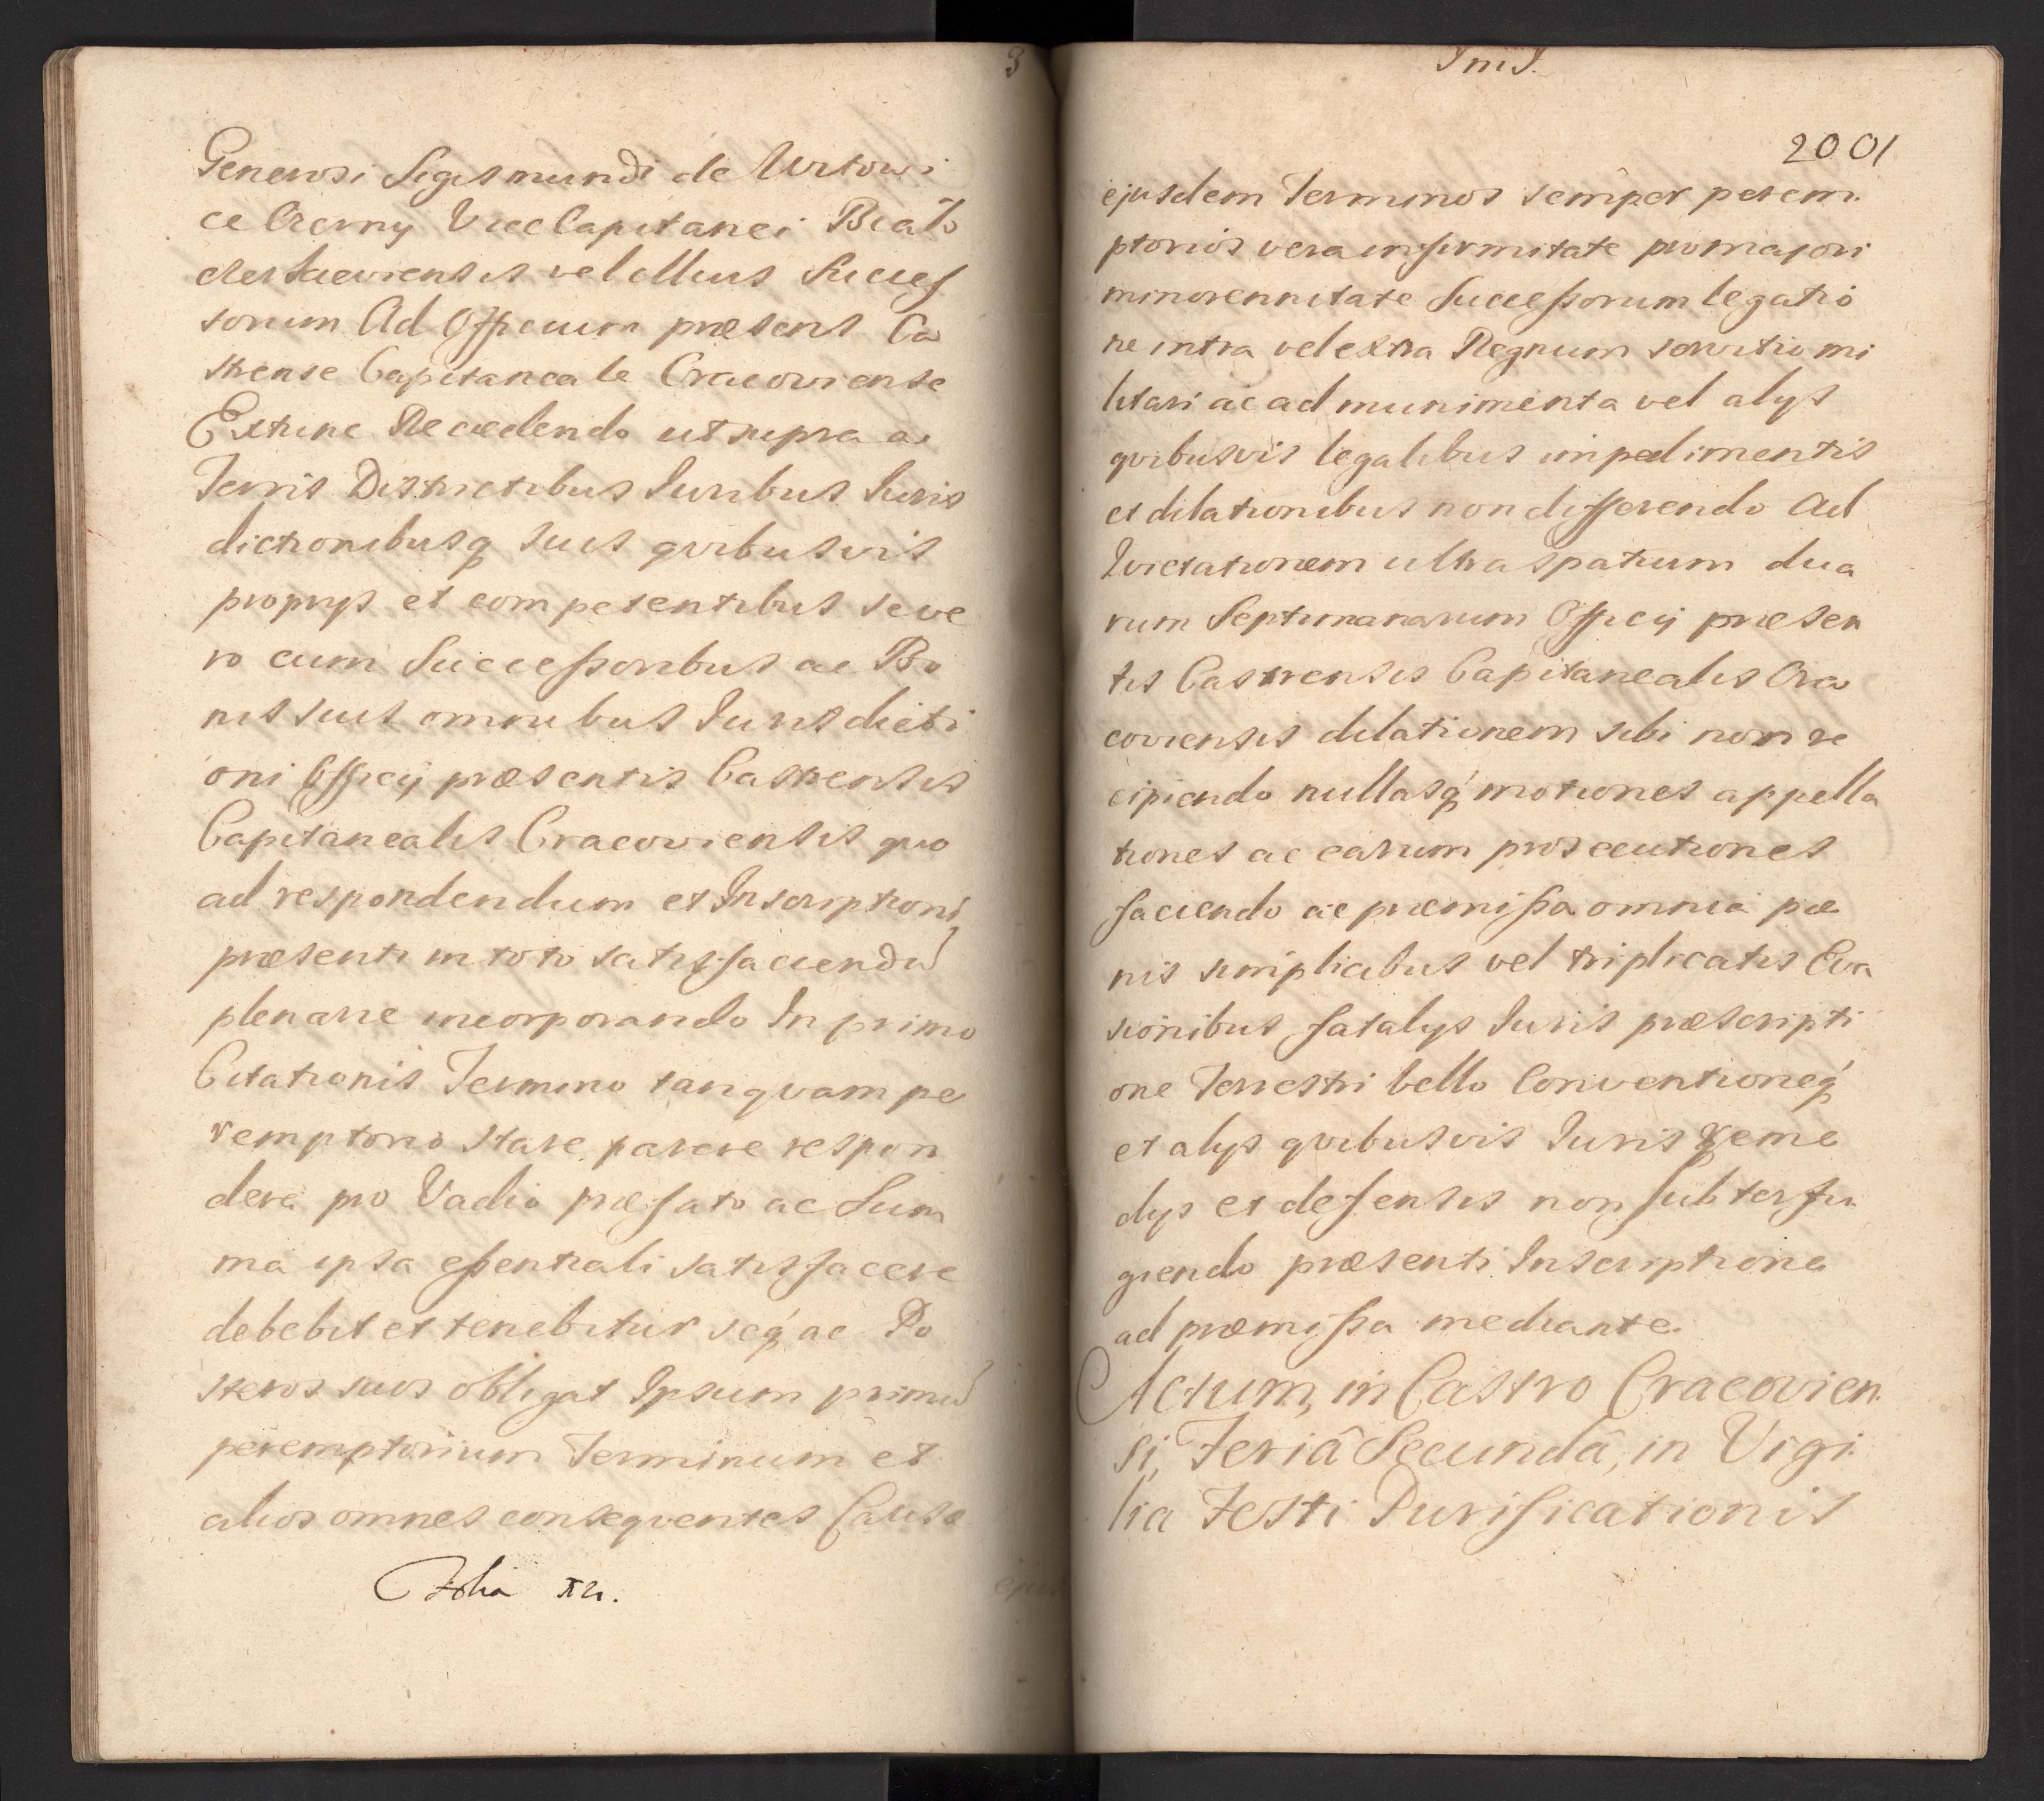 Generosi Sigismundi de Witowi
ce Czerny ViceCapitanei
vel illius Succes
sorum Ad Officium præsens Ca
strense Capitaneale Cracoviense
Extunc Recedendo ut supra a
Terris Districtibus Iuribus Iuris
dictionibusq suis qvibusvis
proprys et competentibus seve
ro cum Succeßoribus ac Bo
nis suis omnibus Iurisdicti
oni Officÿ præsentis Castrensis
Capitanealis Cracoviensis quo
ad respondendum et Inscriptioni
præsenti in toto satisfaciendũ
plenarie incorporando In primo
Citationis Termino tanqvam pe
remptorio stare parere respon
dere pro Vadio præfato ac Sum
ma ipsa eßentiali satisfacere
debebit et tenebitur seq́ ac Po
steros suos obligat Ipsum primũ
peremptorium Terminum et
alios omnes conseqventes Causæ
Folia
3
JmJ.
2001
ejusdem Terminos semper perem
ptorios vera infirmitate pro majori
minorennitate Succeßorum legatio
ne intra vel extra Regnum servitio mi
litari ac ad munimenta vel alys
qvibusvis legalibus impedimentis
et dilationibus non differendo Ad
Qvietationem ultra spatium dua
rum Septimanarum Officÿ præsen
tis Castrensis Capitanealis Cra
coviensis dilationem sibi non re
cipiendo nullasq́ motiones appella
tiones ac earum prosecutiones
faciendo ac præmißa omnia pæ
nis simplicibus vel triplicatis Eva
sionibus fatalys Iuris præscripti
one Terrestri bello Conventioneq́
et alys qvibusvis Iuris reme
dys et defensis non subterfu
giendo præsenti Inscriptione
ad præmißa mediante.
Actum, in Castro Cracovien
si, Feriâ Secundâ, in Vigi
lia Festi Purificationis